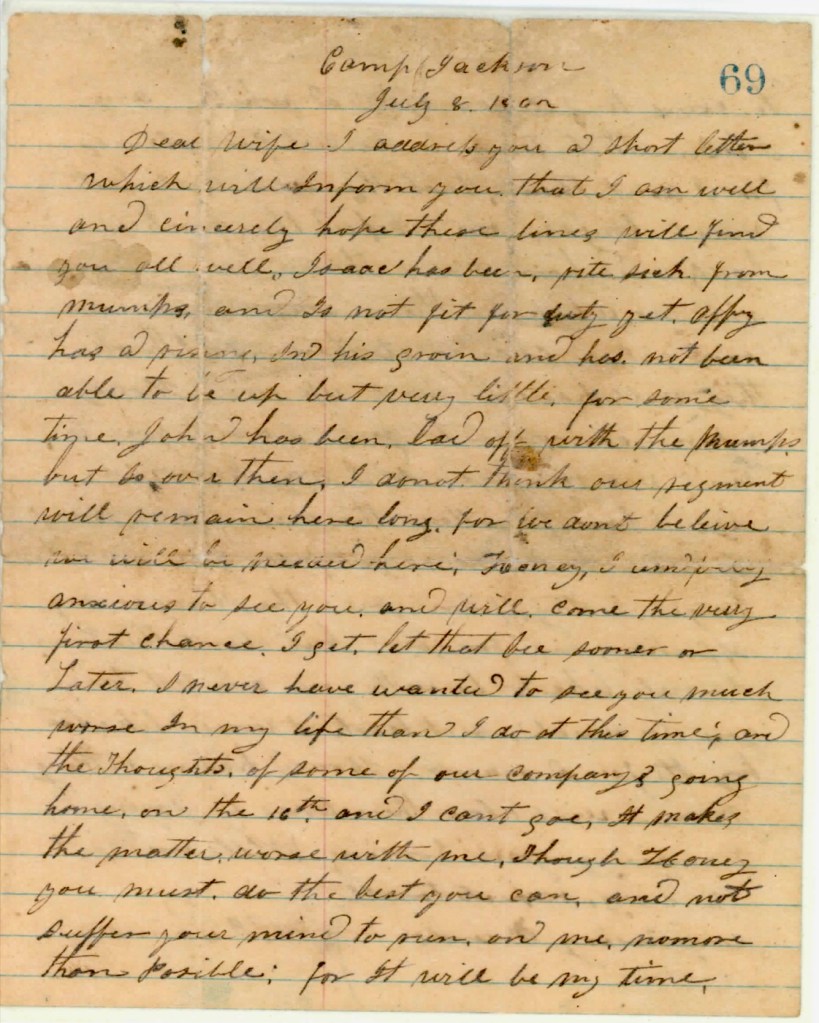 Camp Jackson
69
July 8. 1862
Dear Wife I address you a short letter
which will Inform you that I am well
and cincerely hope these lines will find
you all well, Isaac has been, rite sick from
mumps, and Is not fit for duty yet. Affy
has a rising, In his groin and has not been
able to be up but very little, for some
time. John has been, lad off with the Mumps
but is over then, I donot think our regment
will remain here long, for we dont beleive
we will be needed here, Honey, I am very
anxious to see you. and will. come the very
first chance. I get. let that bee sooner or
Later. I never have wanted to see you much
worse In my life than I do at this time; and
the Thoughts. of some of our company's going
home, on the 16th and I cant goe, It makes
the matter, worse with me, Though Honey
you must. do the best you can, and not
suffer your mind to run, on me, nomore
than Posible; for It will be my time,